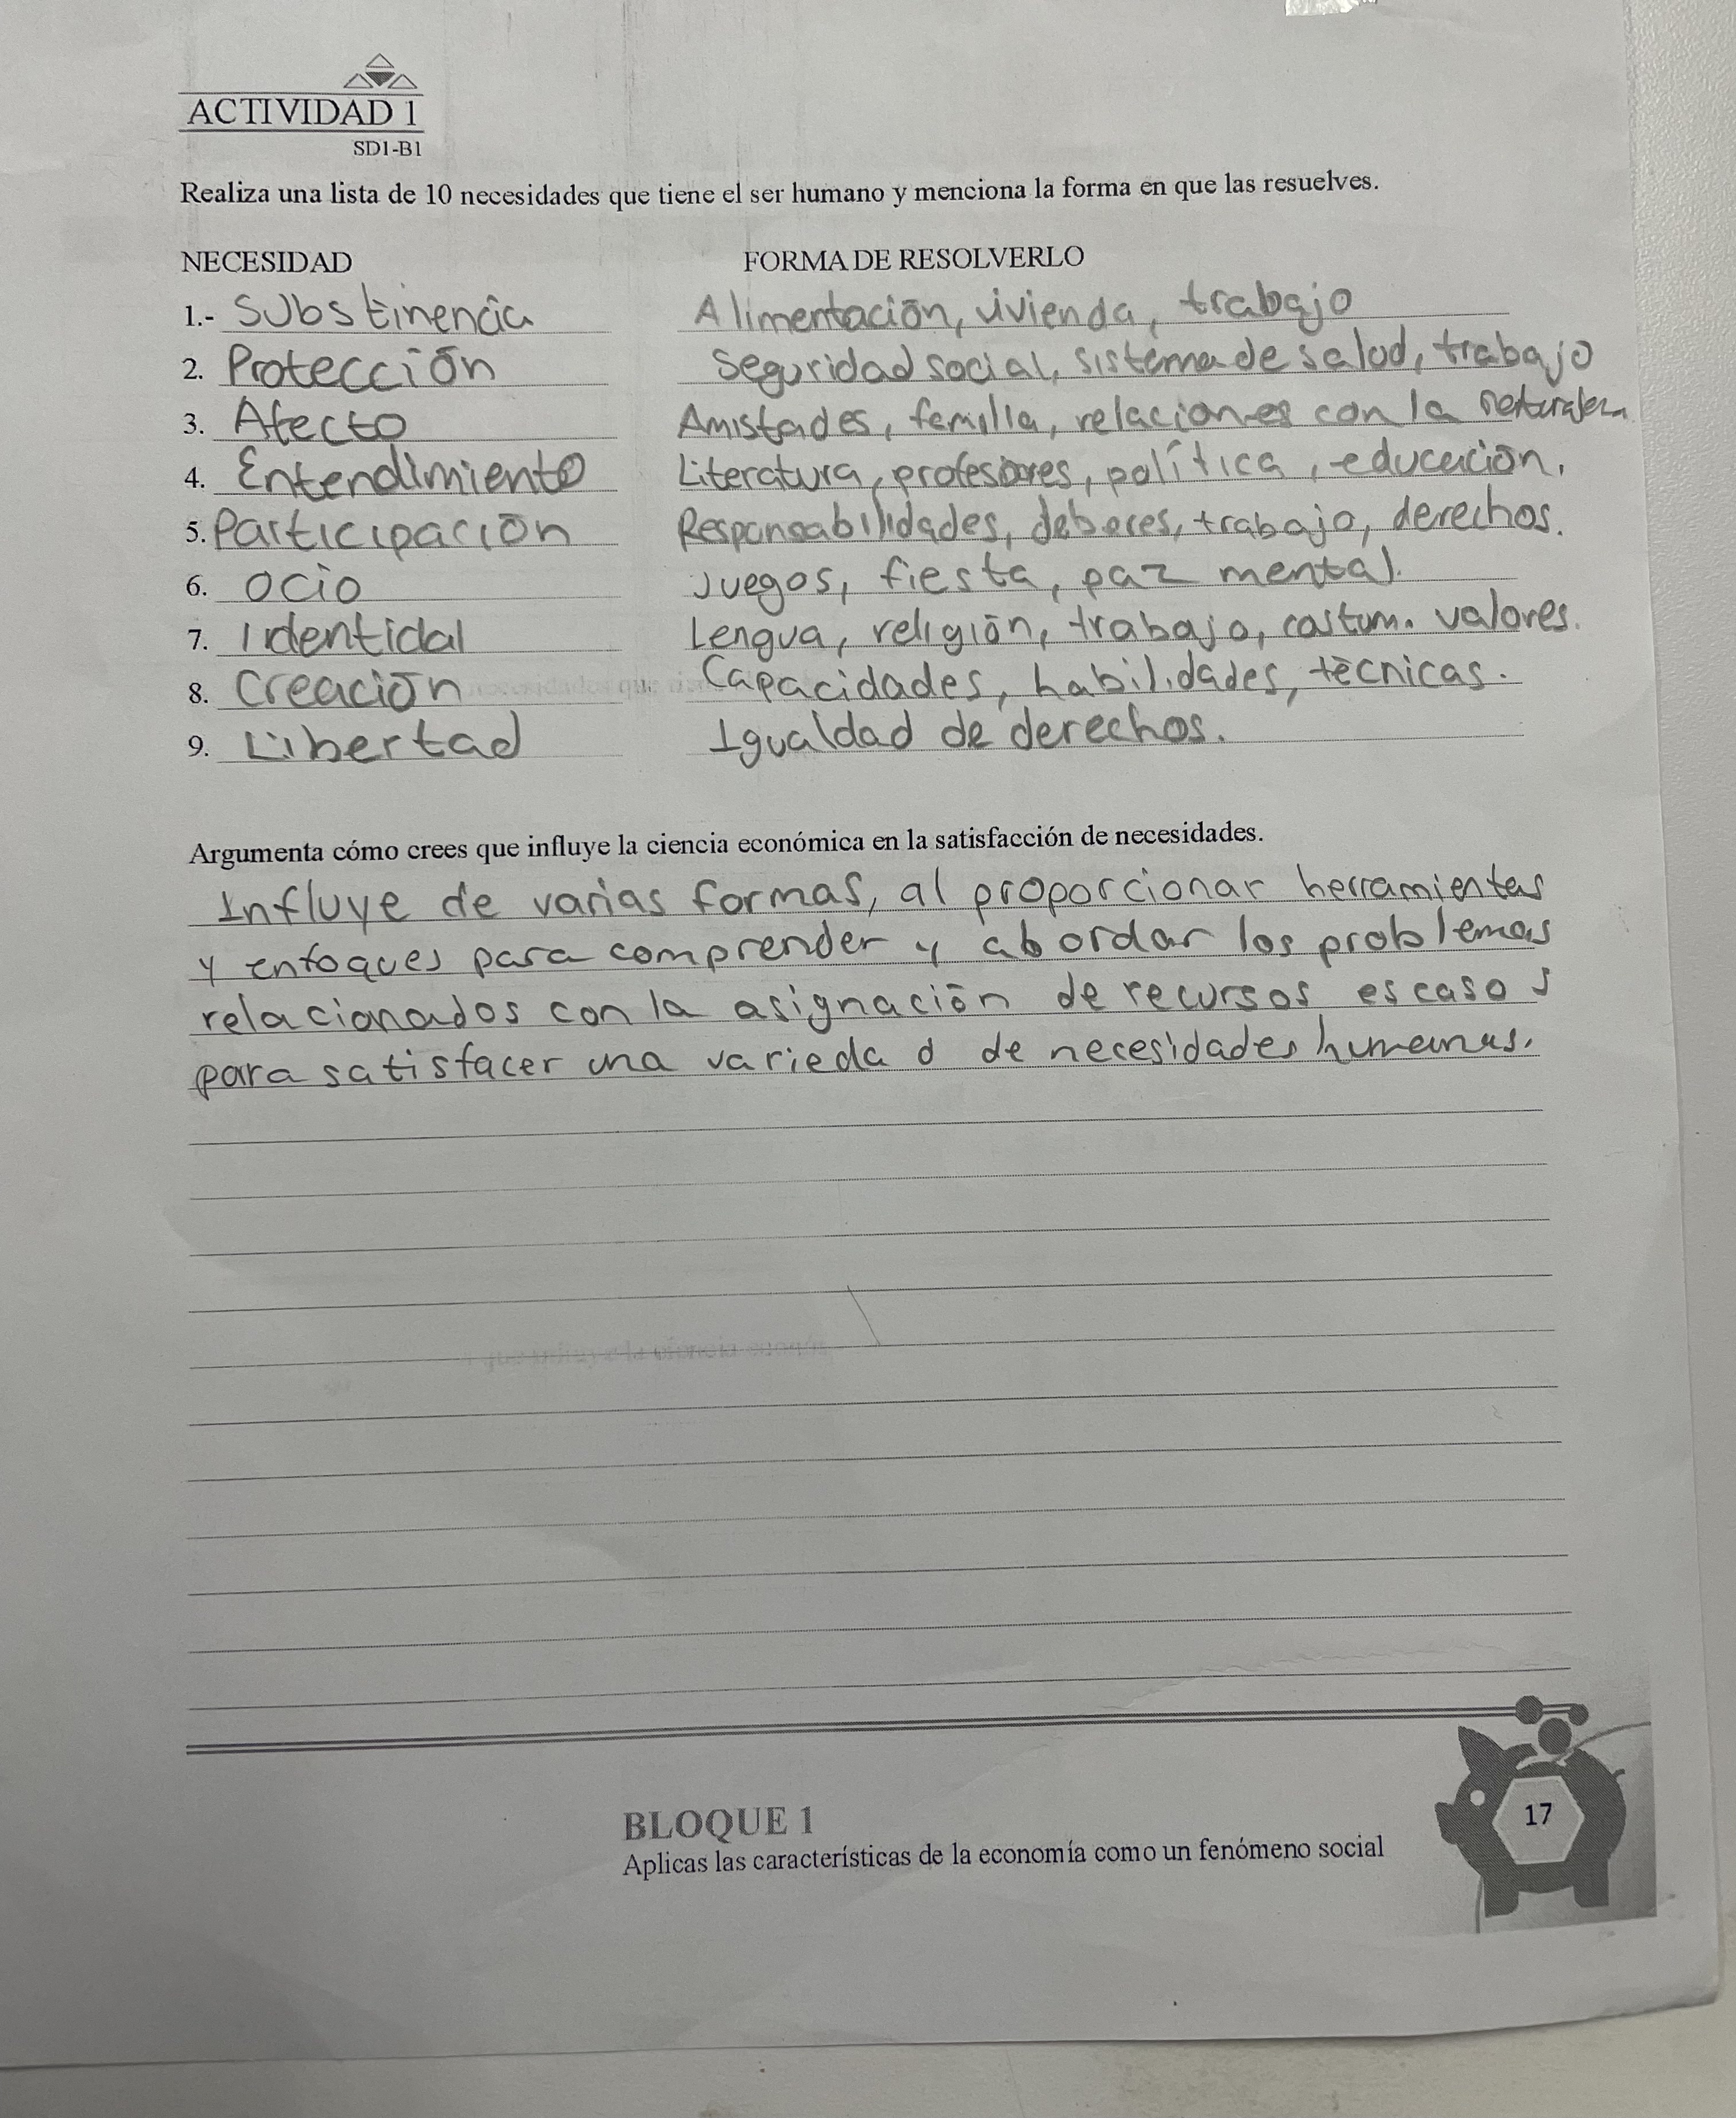 ACTIVIDAD 1
SD1-B1
Realiza una lista de 10 necesidades que tiene el ser humano y menciona la forma en que las resuelves.
NECESIDAD FORMA DE RESOLVERLO
1.- Substinencia Alimentación, vivienda, trabajo
2. Protección Seguridad social, sistema de salud, trabajo
3. Afecto Amistades, familla, relaciones con la naturaleza
4. Entendimiento Literatura, profesores, política, educación.
5. Participación Responsabilidades, deberes, trabajo, derechos.
6. Ocio Juegos, fiesta, paz mental.
7. Identidal Lengua, religión, trabajo, costum. valores.
8. Creación Capacidades, habilidades, técnicas.
9. Libertad Igualdad de derechos.
Argumenta cómo crees que influye la ciencia económica en la satisfacción de necesidades.
Influye de varias formas, al proporcionar herramientas
y enfoques para comprender y abordar los problemas
relacionados con la asignación de recursos escasos
para satisfacer una variedad de necesidades humanas.
BLOQUE 1
Aplicas las características de la economía como un fenómeno social
17